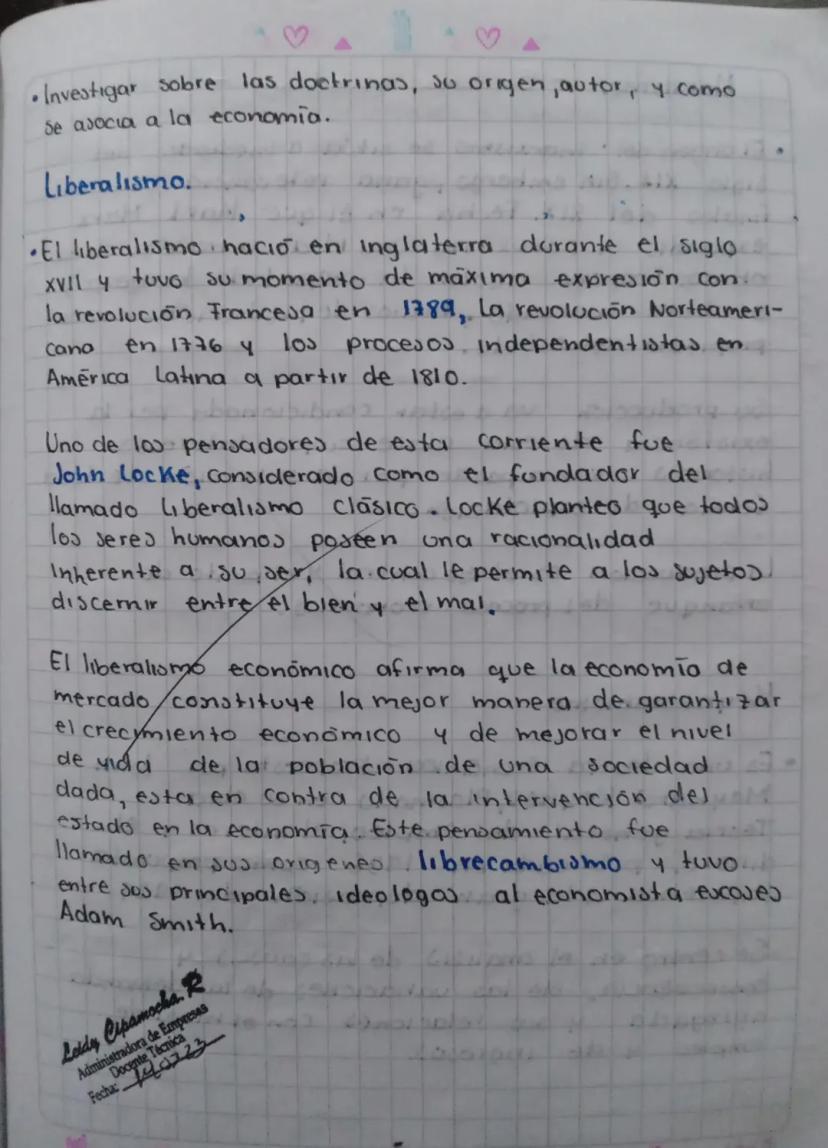 • Investigar sobre las doctrinas, su origen, autor, y como
se asocia a la economía.
Liberalismo.
• El liberalismo nació en inglaterra durante el siglo
XVII y tuvo su momento de máxima expresión con
la revolución Francesa en 1789, La revolución Norteameri-
cana en 1776 y los procesos independentistas en
América Latina a partir de 1810.
Uno de los pensadores de esta corriente fue
John Locke, considerado como el fundador del
llamado liberalismo clásico. Locke planteo que todos
los seres humanos poseen una racionalidad
inherente a su ser, la cual le permite a los sujetos
discernir entre el bien y el mal.
El liberalismo económico afirma que la economía de
mercado constituye la mejor manera de garantizar
el crecimiento económico y de mejorar el nivel
de vida de la población de una sociedad
dada, esta en contra de la intervención del
estado en la economía. Este pensamiento fue
llamado en sus origenes librecambismo y tuvo
entre sus principales ideologos al economista escoses
Adam Smith.
Leidy Cipamocha R
Administradora de Empresas
Docente Técnica
Fecha: